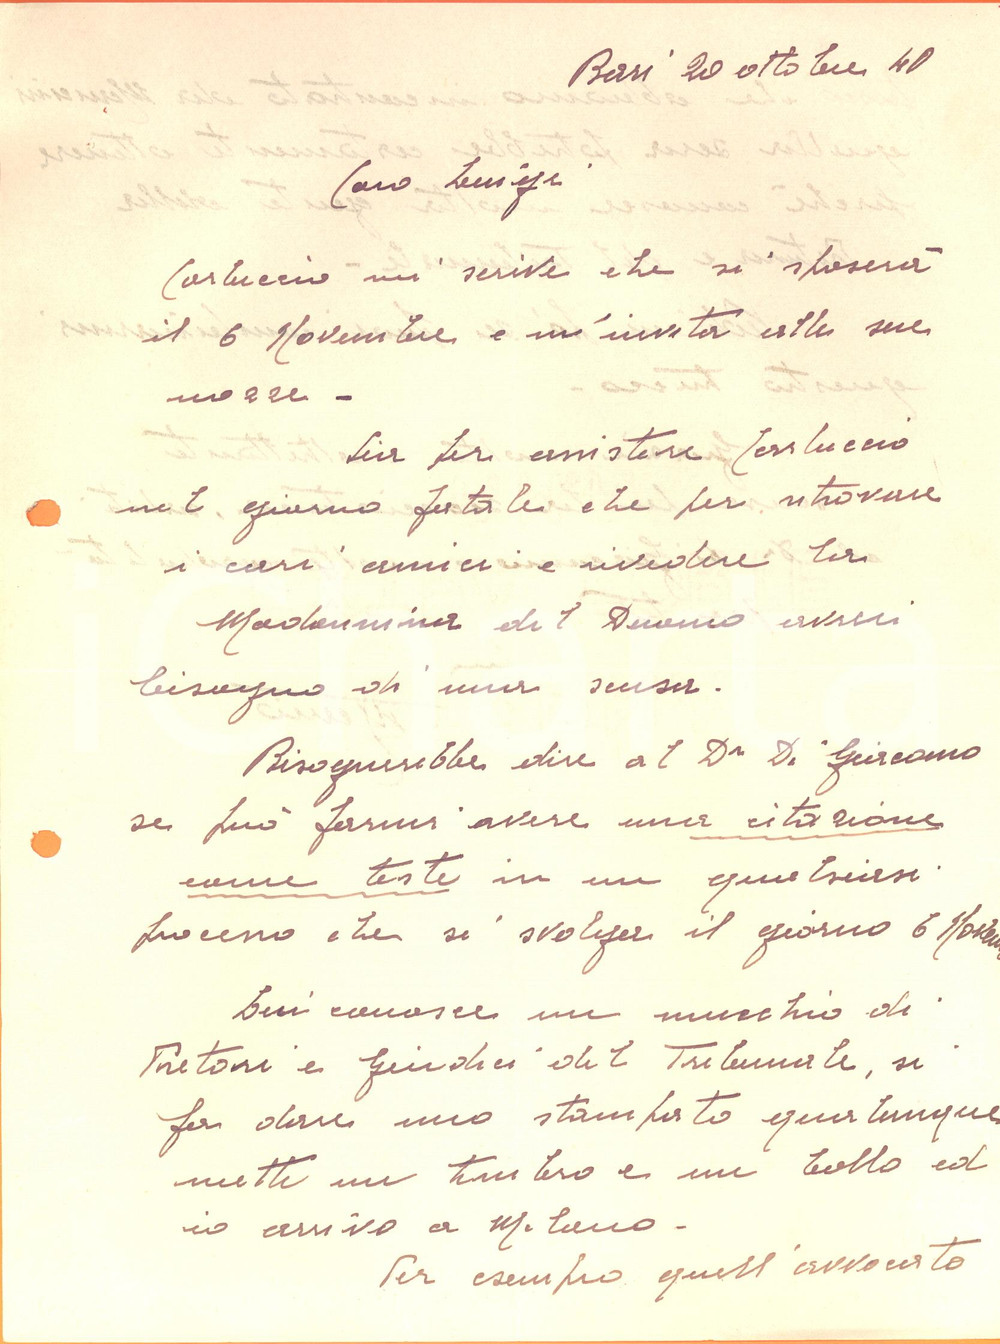 Bari 20 ottobre 40
Caro Luigi
Carluccio mi scrive che si sposerà
il 6 Novembre e m'invita alle sue
nozze -
Sia per assistere Carluccio
nel giorno fatale che per ritrovare
i cari amici e rivedere la
Madonnina del Duomo avrei
bisogno di una scusa.
Bisognerebbe dire al Dr Di Giacomo
se può farmi avere una citazione
come teste in un qualsiasi
processo che si svolga il giorno 6 Novem
Lui conosce un mucchio di
Pretori e Giudici del Tribunale, si
fa dare uno stampato qualunque
mette un timbro e un bollo ed
io arrivo a Milano -
Per esempio quell'avvocato
iCharta